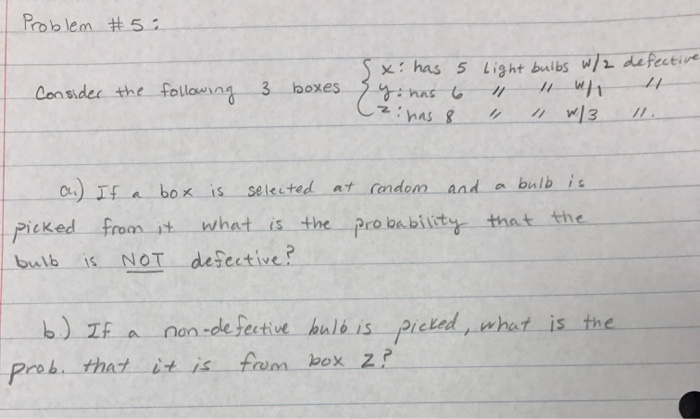 Problem #5:
x: has 5 light bulbs w/2 defective
Consider the following 3 boxes y: has 6 " " w/1 "
z: has 8 " " w/3 ".
a.) If a box is selected at random and a bulb is
picked from it what is the probability that the
bulb is NOT defective?
b.) If a non-defective bulb is picked, what is the
prob. that it is from box z?